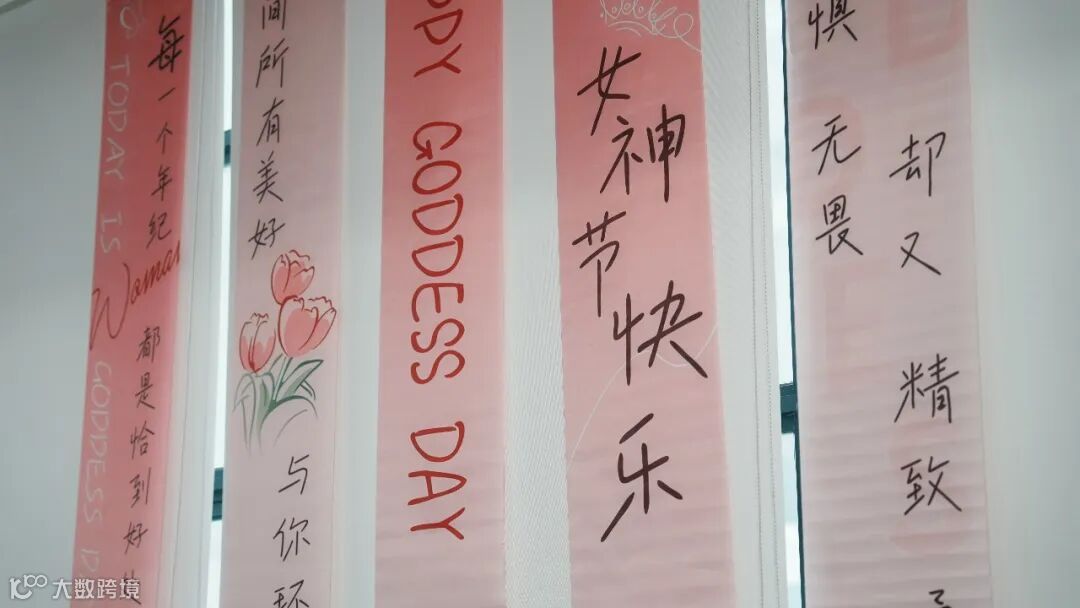 TODAY IS
Woman
GODDESS
每一个年纪
都是恰到好
间所有美好
与你环
PPY GODDESS DAY
女神节快乐
惧无畏
却又精致
大数跨境